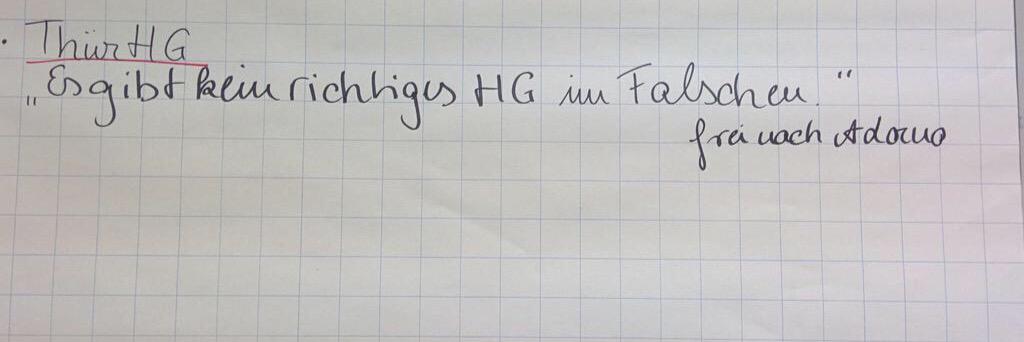 · ThürHG
„Es gibt kein richtiges HG im Falschen."
frei nach Adorno